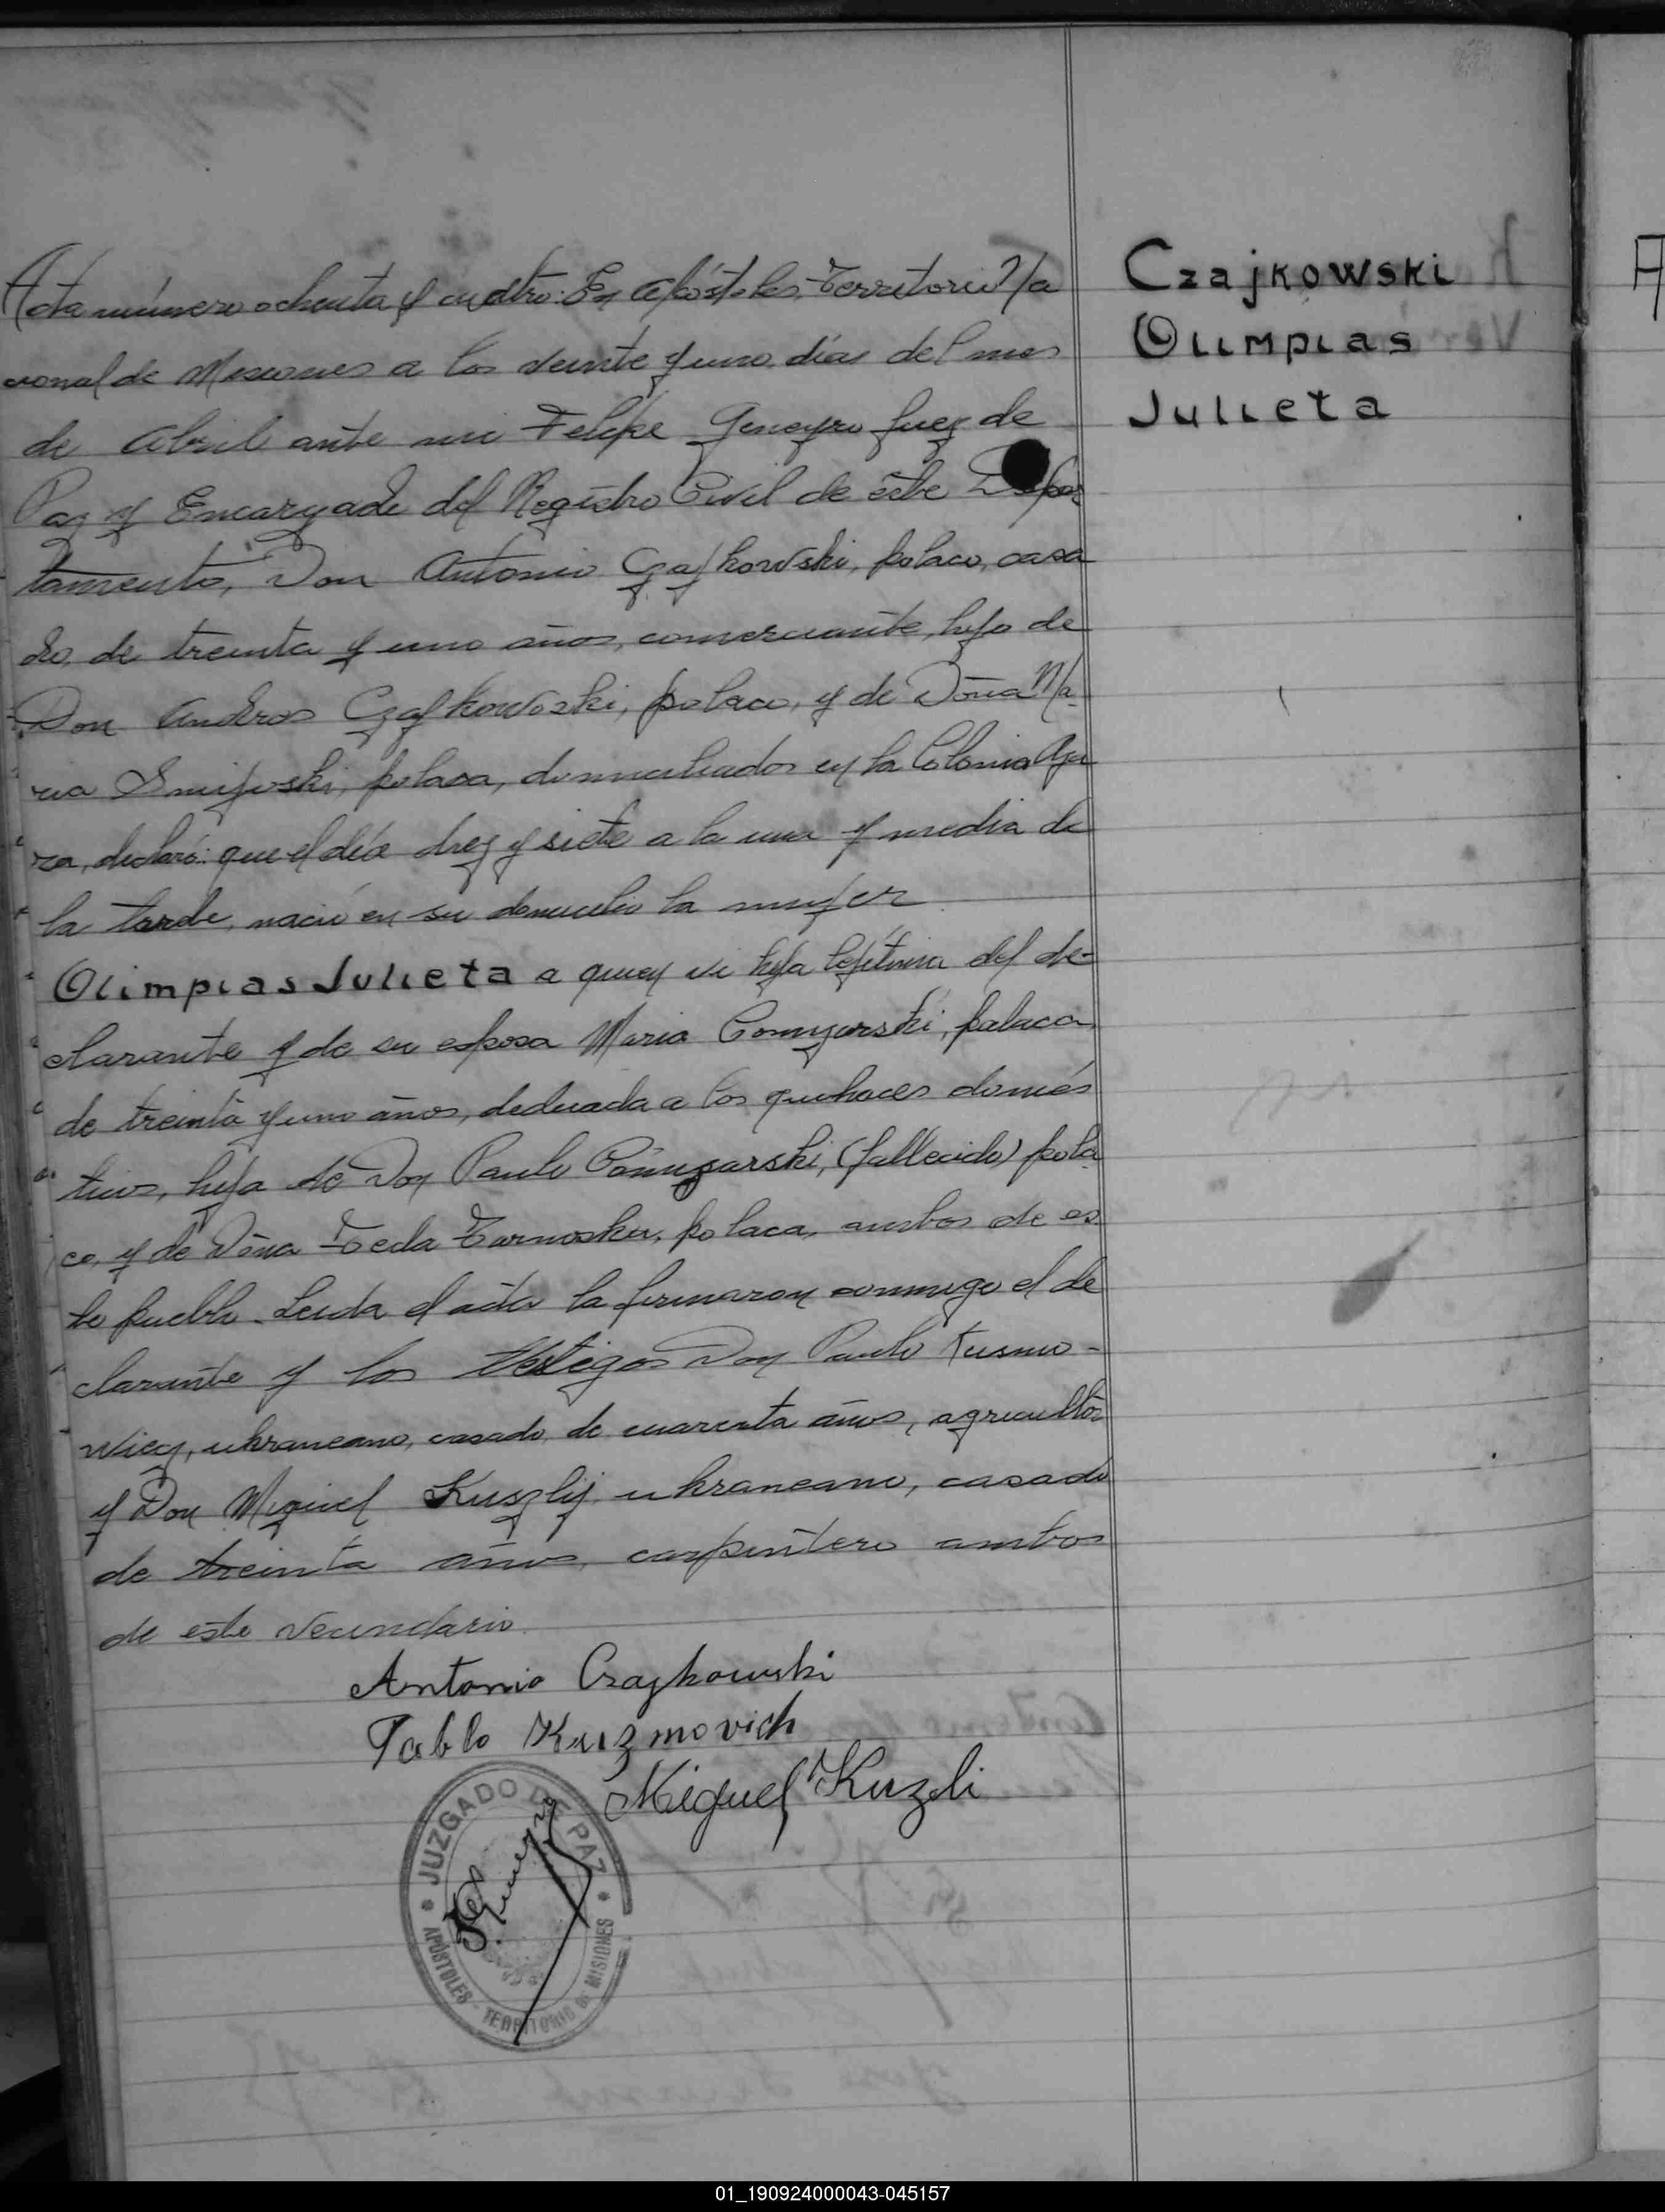 Czajkowski
Olimpias
Julieta
Acta número ochenta y cuatro: En Apóstoles, Territorio Na
cional de Misiones a los veinte y uno, días del mes
de Abril ante mi Felipe Geneyro Juez de
Paz y Encargado del Registro Civil de éste Depar
tamento, Don Antonio Czajkowski, polaco, casa
do, de treinta y uno años, comerciante, hijo de
Don Andres Czajkowoski, polaco, y de Doña Ma-
ria polaca, domiciliados en la Colonia Aza
ra, declaró: que el día diez y siete a la una y media de
la tarde, nació en su domicilio la mujer
Olimpias Julieta a quien vi hija lejítima del de-
clarante y de su esposa Maria polaca
de treinta y uno años, dedicada a los quehaces domés
ticos, hija de Don Paulo (fallecido) pola
co, y de Doña Tecla polaca, ambos de es
te pueblo. Leida el acta la firmaron conmigo el de
clarante y los testigos Don Paulo Kusmo-
wicz, ukraneano, casado, de cuarenta años, agricultor
y Don Miguel Kuszlij, ukraneano, casado
de treinta años, carpintero ambos
de este vecindario.
Antonio Czajkowski
Pablo Kuzmovich
Miguel Kuzli
JUZGADO DE PAZ
APÓSTOLES - TERRITORIO DE MISIONES
01_190924000043-045157